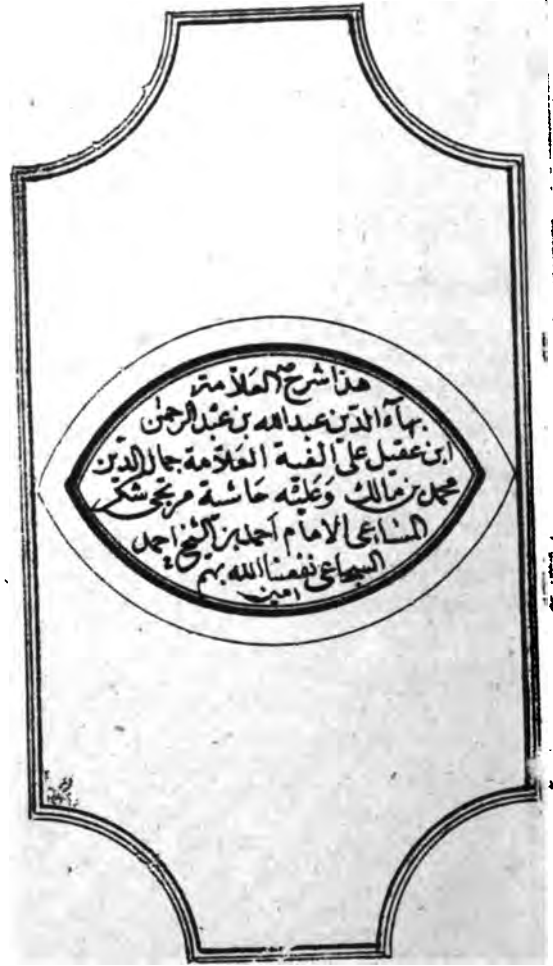 هذا شرح العلامة
بهاء الدين عبد الله بن عبد الرحمن
ابن عقيل على الفية العلامة جمال الدين
محمد بن مالك وعليه حاشية مرتجى شكر
المساعى الامام احمد بن الشيخ احمد
السجاعى نفعنا الله بهم
امين